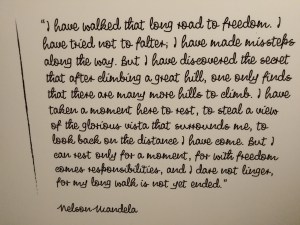 "I have walked that long road to freedom. I
have tried not to falter; I have made missteps
along the way. But I have discovered the secret
that after climbing a great hill, one only finds
that there are many more hills to climb. I have
taken a moment here to rest, to steal a view
of the glorious vista that surrounds me, to
look back on the distance I have come. But I
can rest only for a moment, for with freedom
comes responsibilities, and I dare not linger,
for my long walk is not yet ended."
Nelson Mandela